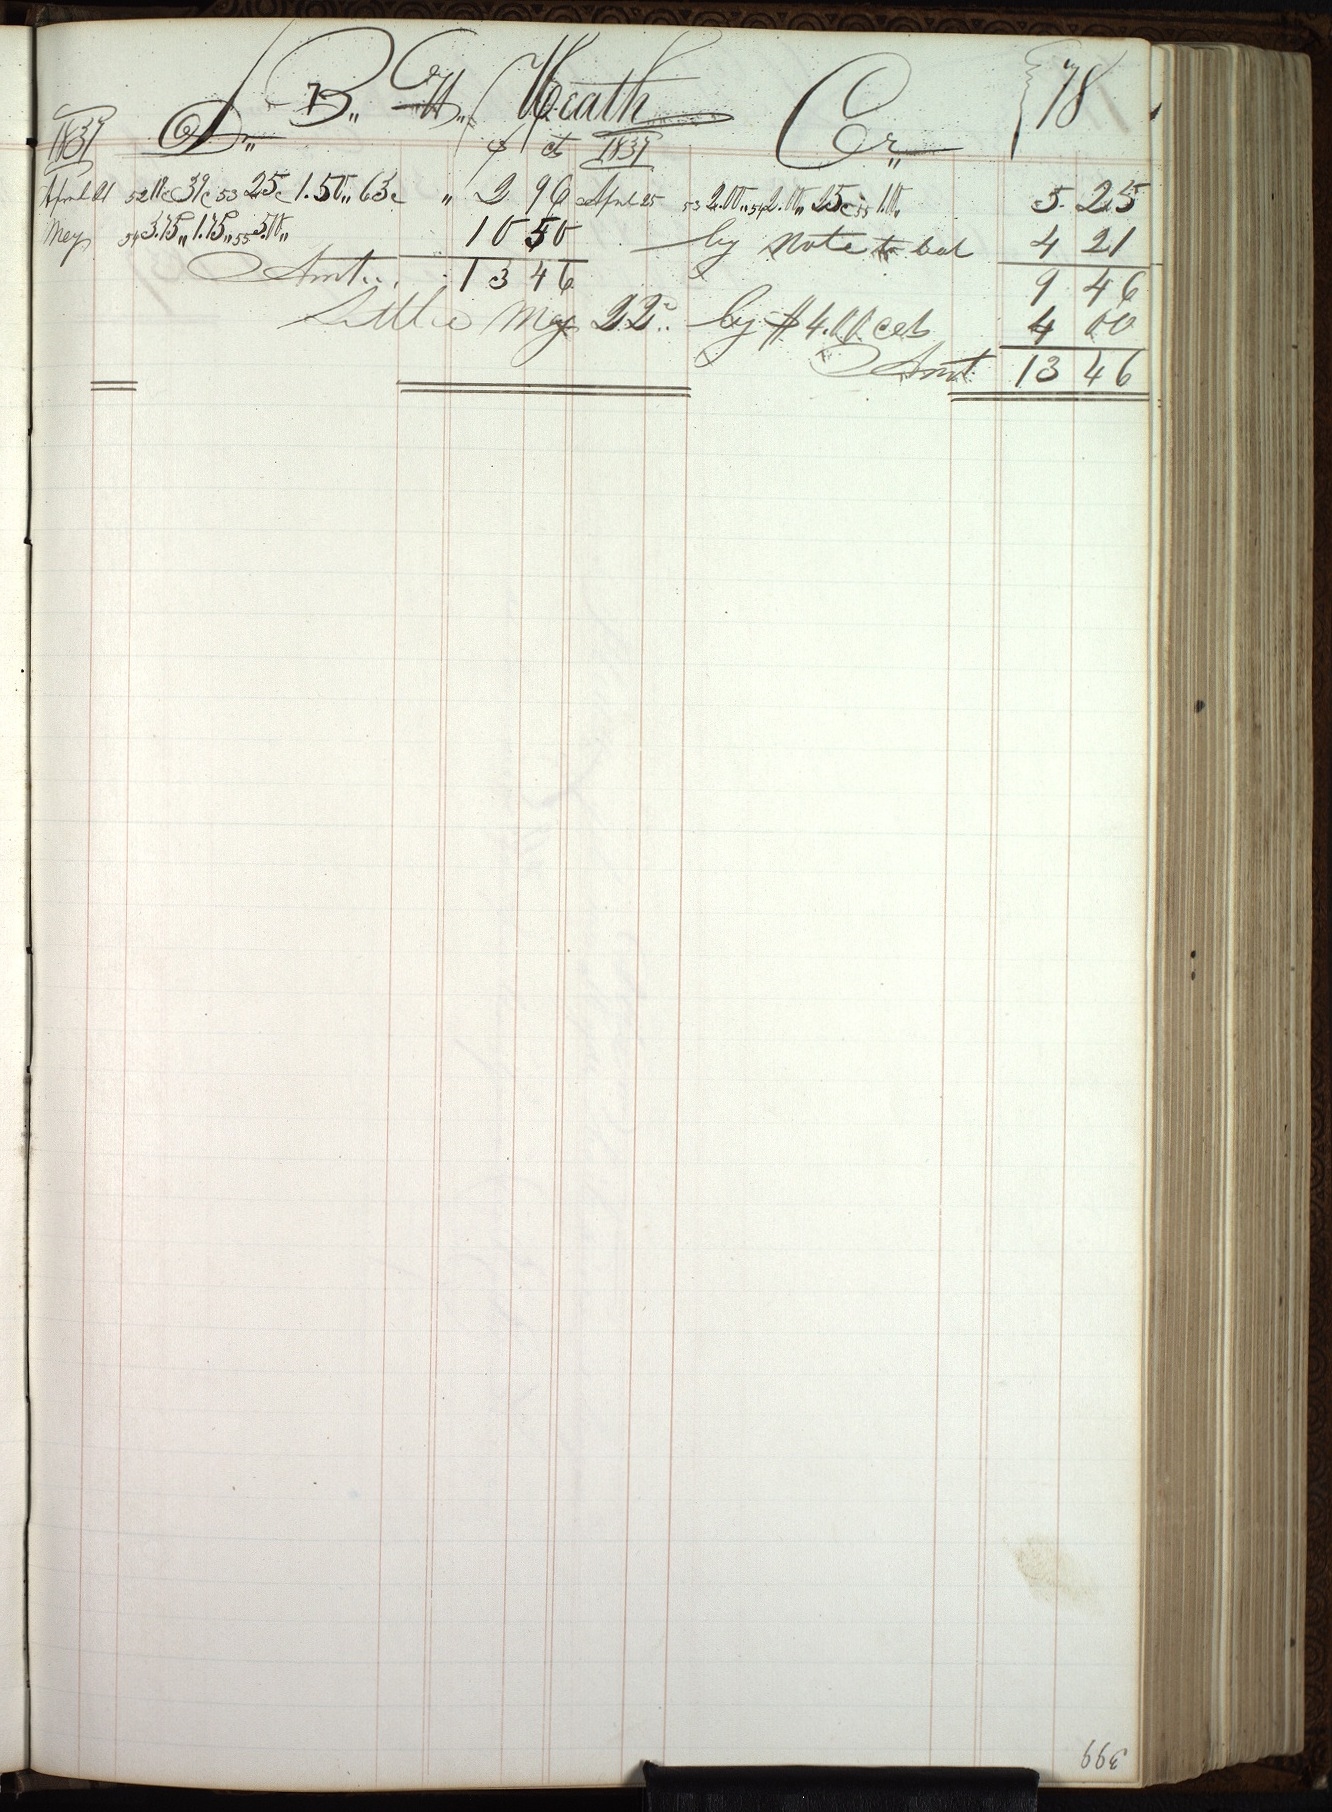 Dr,, B,, H,, Heath Cr,, 78
1837 $ cts 1837
April 21 52 18c 39c 53 25c 1.50,, 63c " 2 96 April 25 53 2.00,, 54 2.00,, 25c 55 1.00,, 5 25
May 54 3.75,, 1.75,, 55 5.00,, 10 50 by note to bal 4 21
Amt,, 13 46 9 46
Settle May 22d,, by $4.00 cash 4 00
Amt 13 46
399